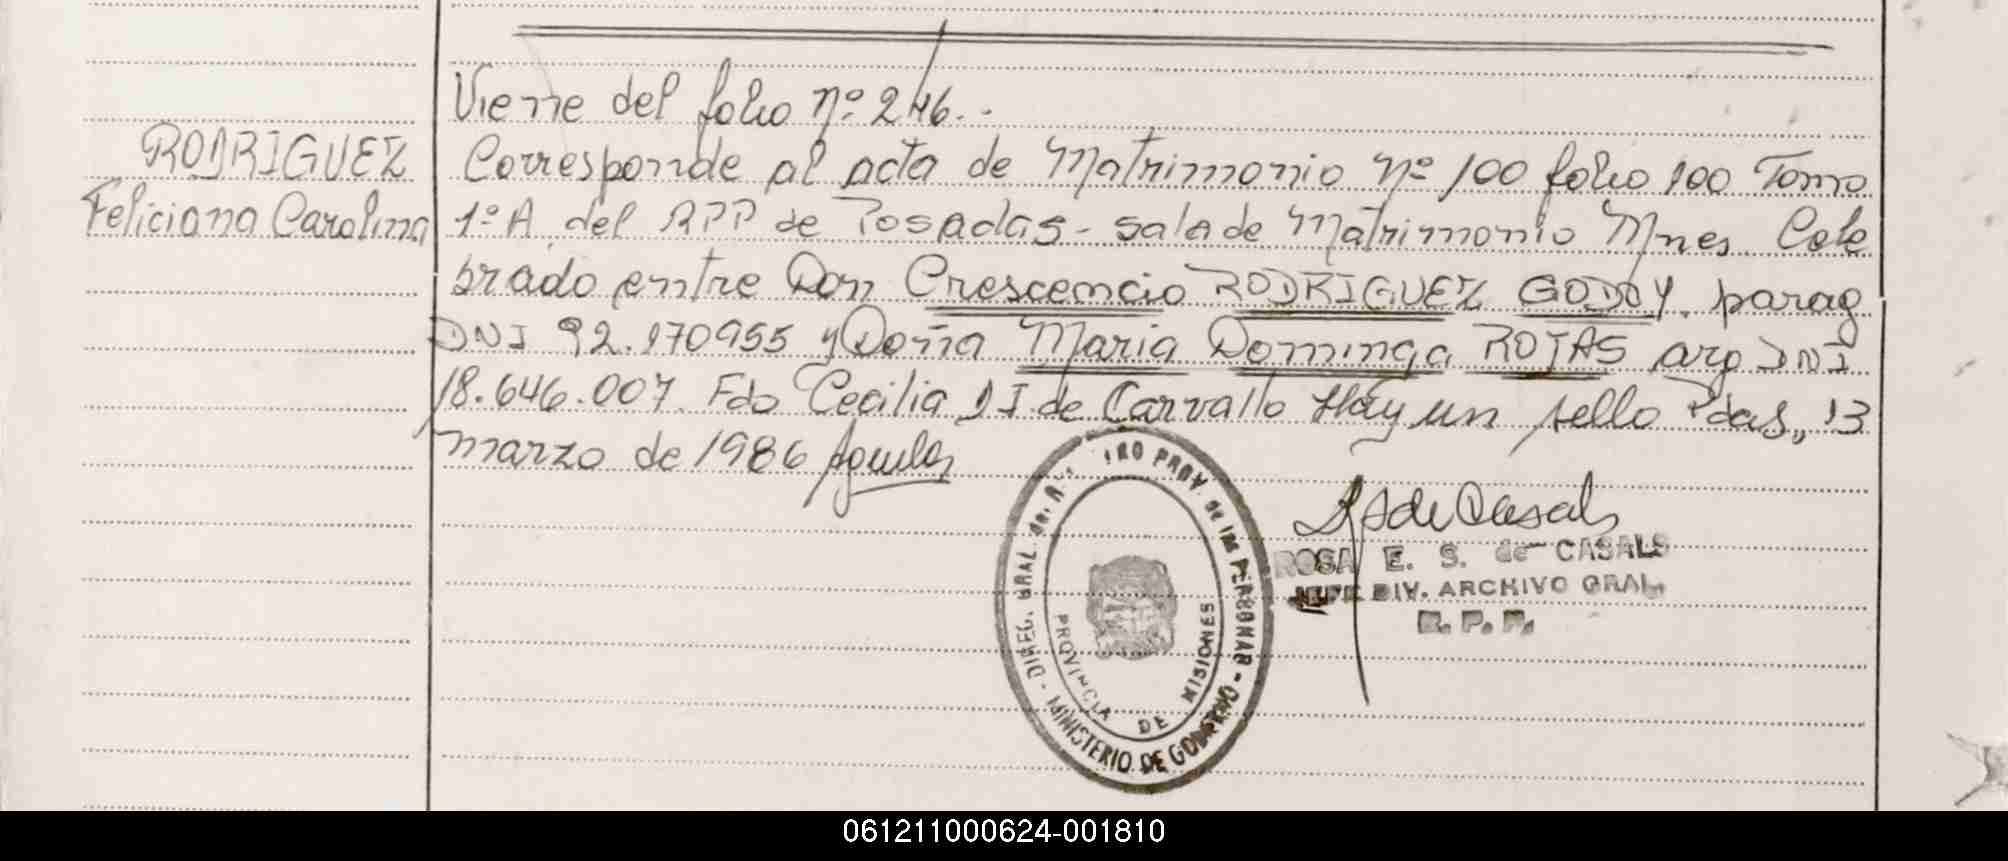 Viene del folio nº 246.-
RODRIGUEZ
Feliciana Carolina
Corresponde al acta de Matrimonio nº 100 folio 100 Tomo
1º A del RPP de Posadas - sala de Matrimonio Mnes. Cele
brado entre Don Crescencio RODRIGUEZ GODOY. parag
DNI 92.170955 y Doña Maria Dominga ROJAS arg DNI
18.646.007. Fdo Cecilia I de Carvallo Hay un sello Pdas,, 13
marzo de 1986
ROSA E. S. de CASALS
JEFE DIV. ARCHIVO GRAL.
R. P. P.
DIREC. GRAL. del R... TRO PROV. de las PERSONAS - MINISTERIO DE GOBIERNO -
PROVINCIA DE MISIONES
061211000624-001810